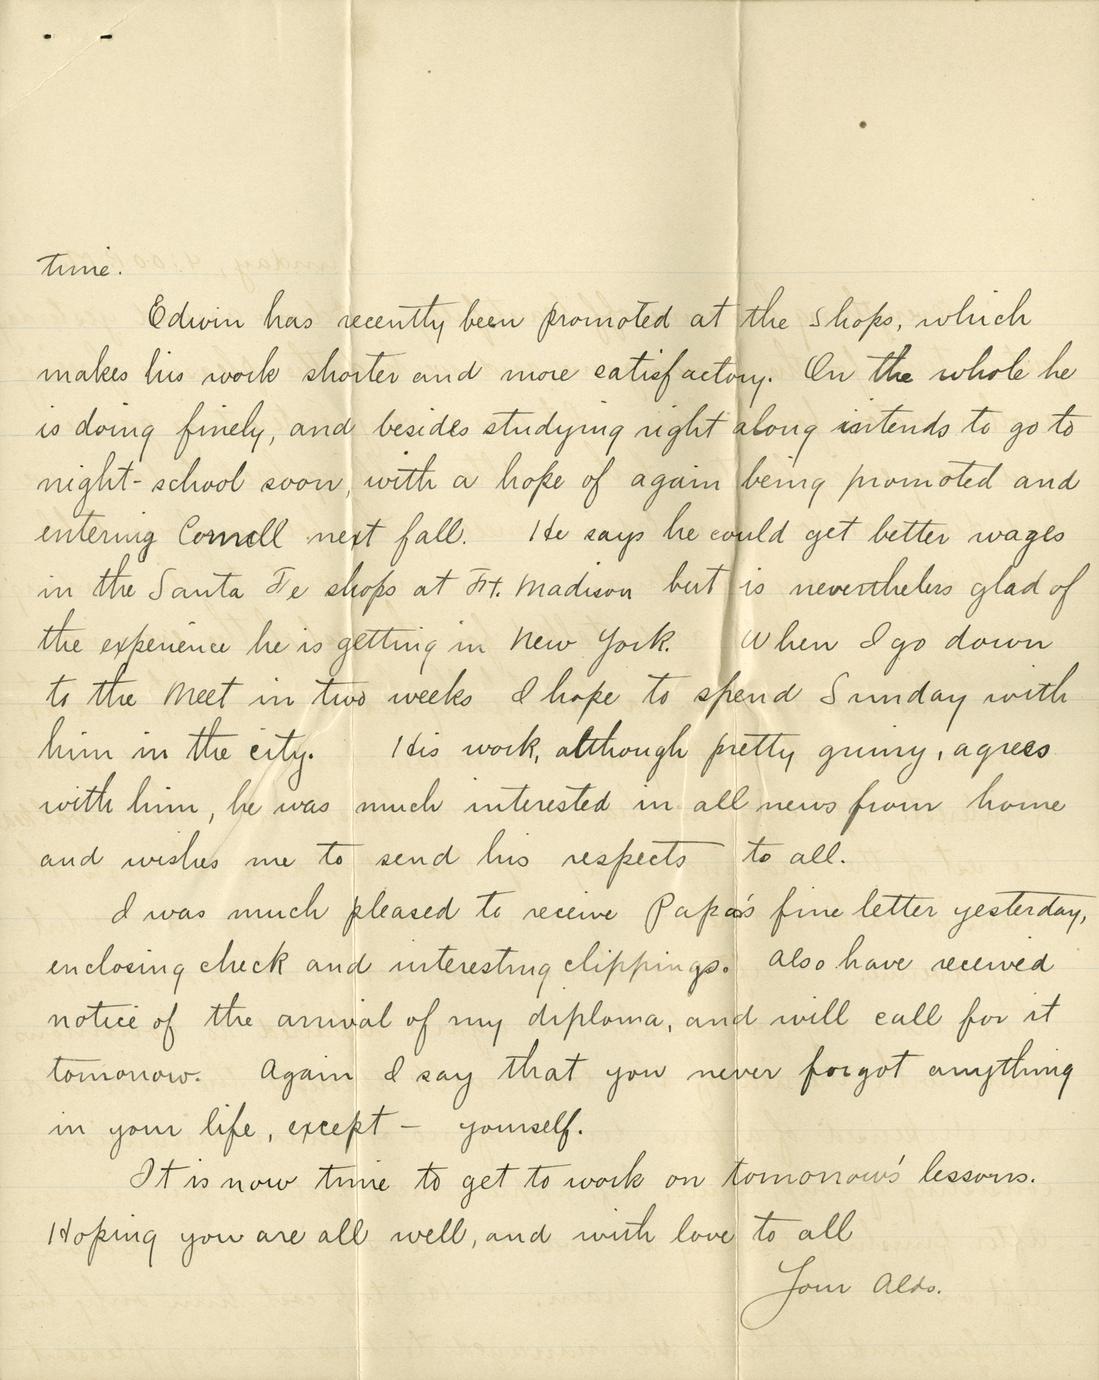 time.
Edwin has recently been promoted at the Shops, which
makes his work shorter and more satisfactory. On the whole he
is doing finely, and besides studying right along intends to go to
night-school soon, with a hope of again being promoted and
entering Cornell next fall. He says he could get better wages
in the Santa Fe shops at Ft. Madison but is nevertheless glad of
the experience he is getting in New York. When I go down
to the Meet in two weeks I hope to spend Sunday with
him in the city. His work, although pretty grimy, agrees
with him, he was much interested in all news from home
and wishes me to send his respects to all.
I was much pleased to receive Papa's fine letter yesterday,
enclosing check and interesting clippings. Also have received
notice of the arrival of my diploma, and will call for it
tomorrow. Again I say that you never forgot anything
in your life, except — yourself.
It is now time to get to work on tomorrow's lessons.
Hoping you are all well, and with love to all
Your Aldo.